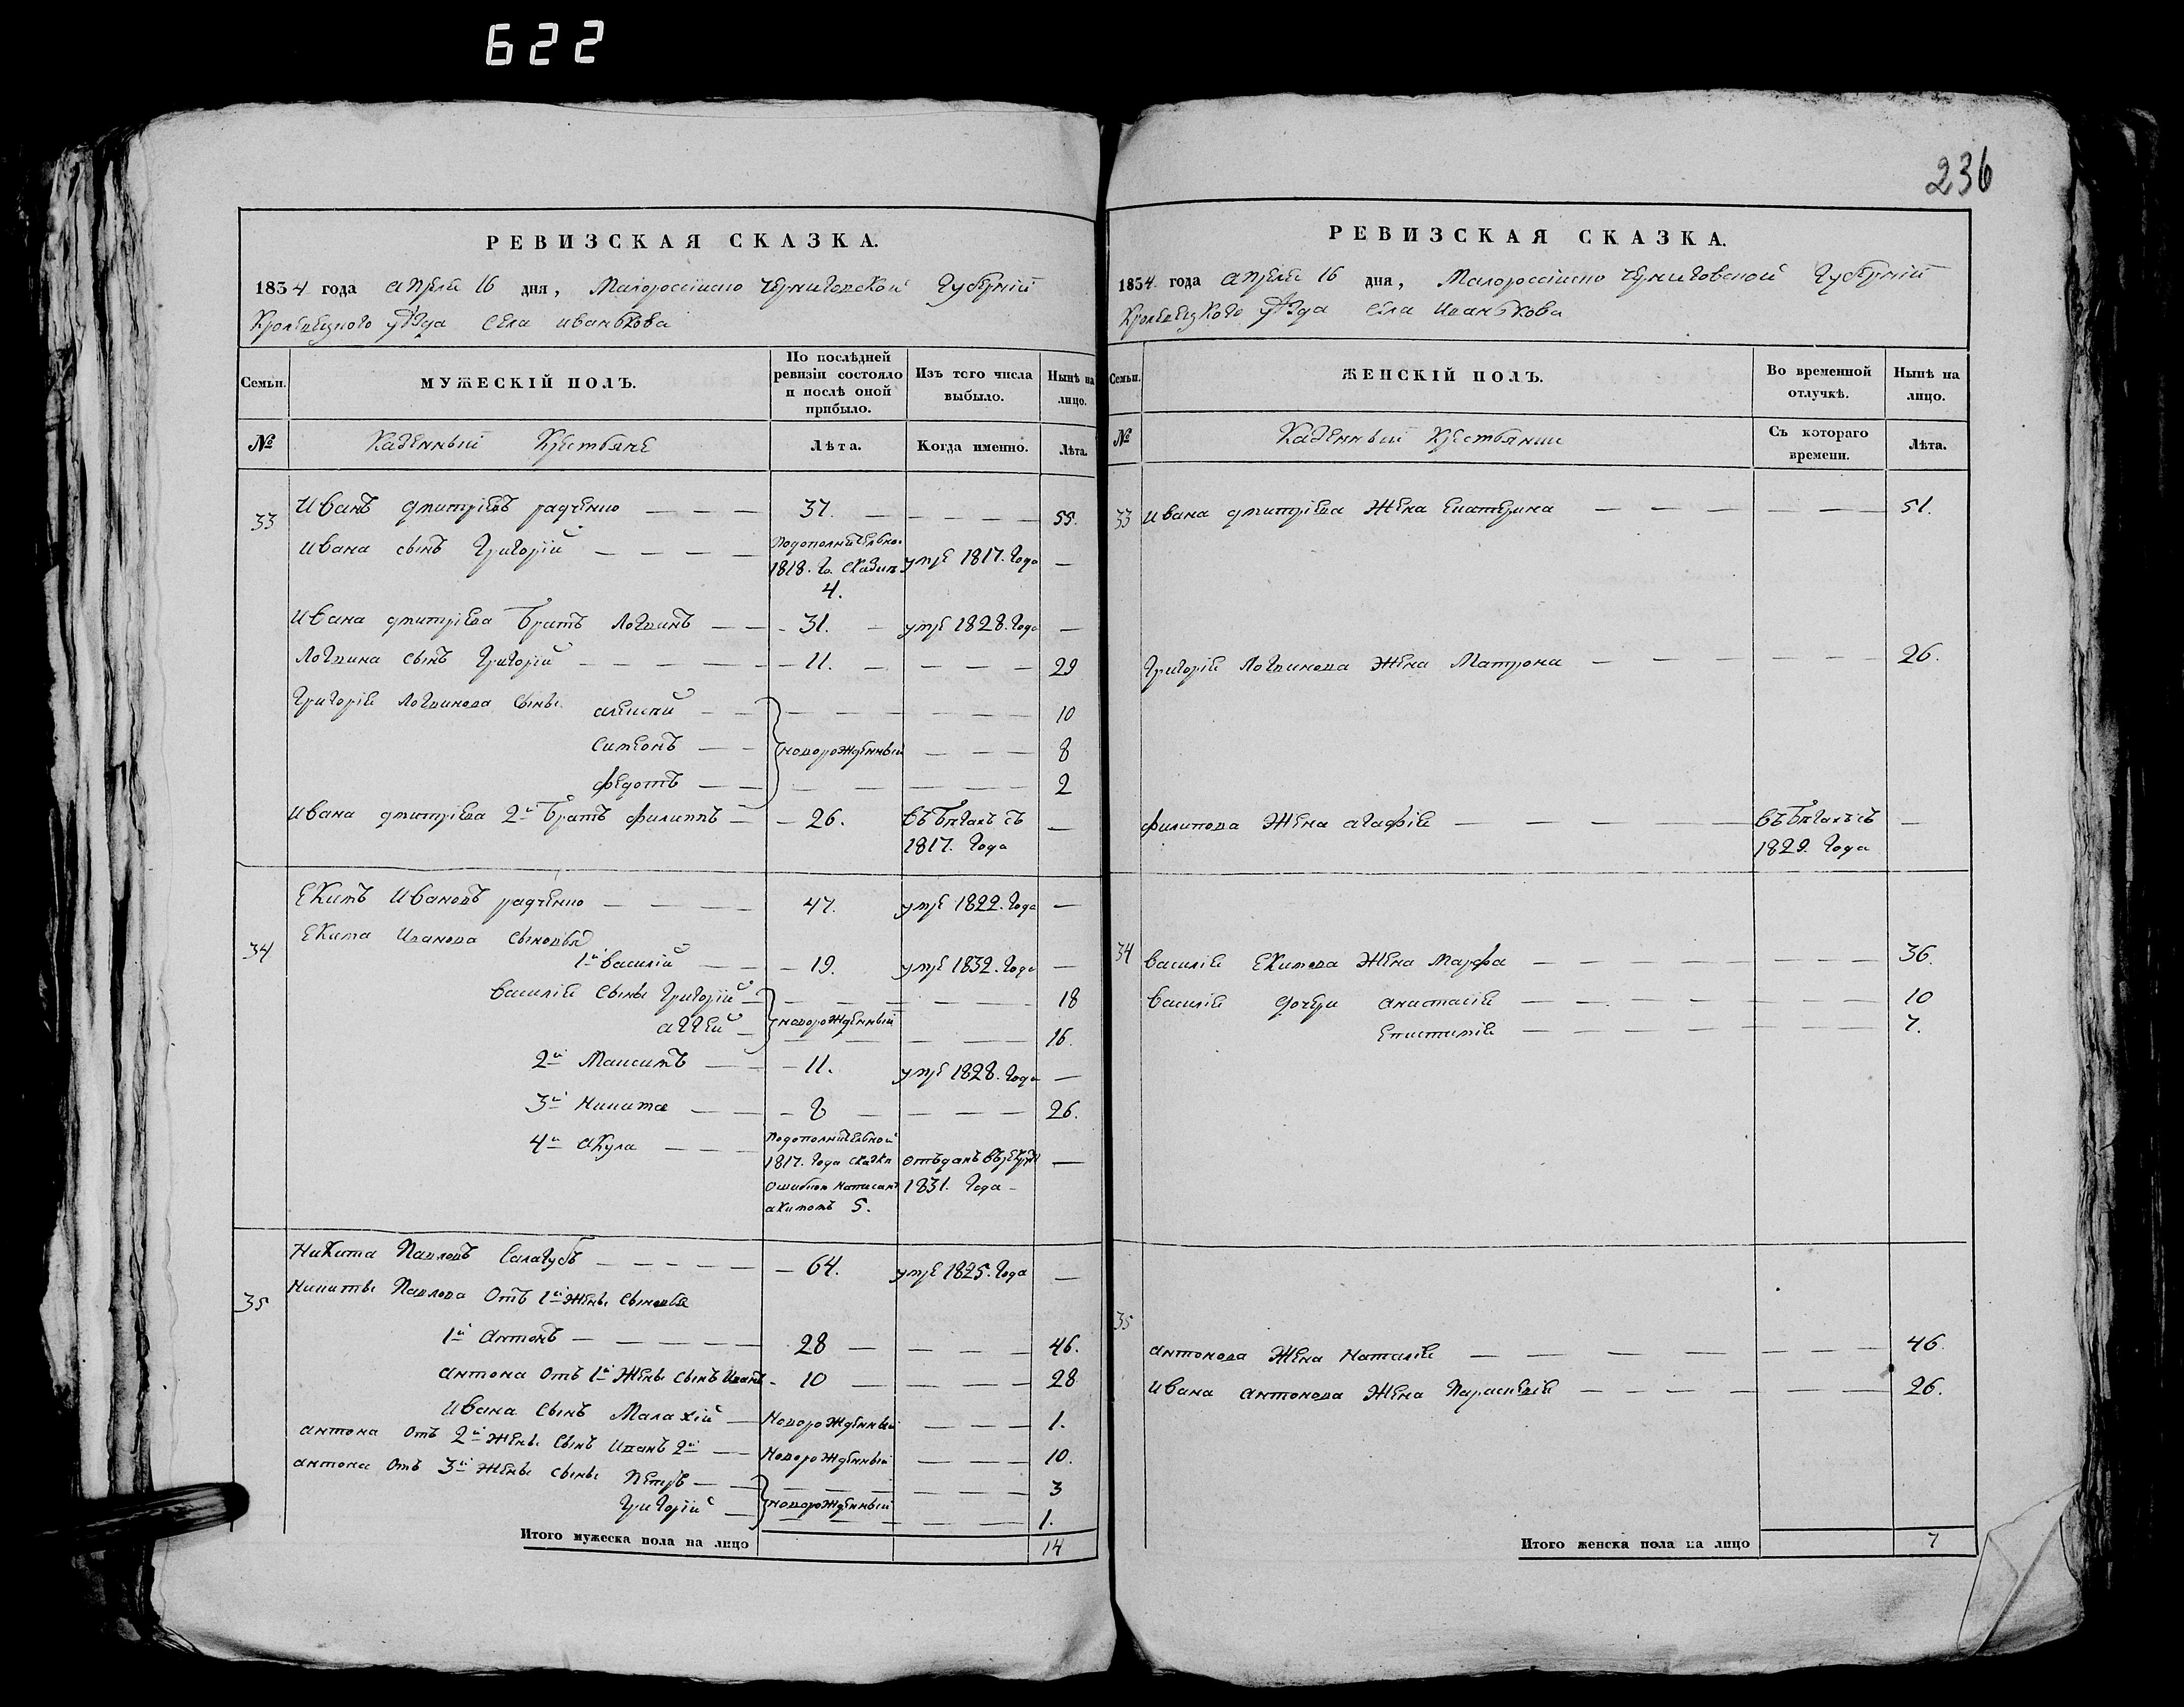 622
236
РЕВИЗСКАЯ СКАЗКА.
1834 года апреля 16 дня, Малороссийско Черниговской Губернии
Кролевецкого уѣзда села иванькова
Семьи.
МУЖЕСКІЙ ПОЛЪ.
По послѣдней ревизіи состояло и послѣ оной прибыло.
Изъ того числа выбыло.
Нынѣ на лицо.
№ Казенный Крестьяне Лѣта. Когда именно. Лѣта.
33 Иванъ дмитріевъ радченко — — — 37. — — — — — 55.
Ивана сынъ Григорій — — — — Подополнительно. 1818. Го. сказкѣ 4. умре 1817. Года —
Ивана дмитріева братъ Логвинъ — — 31. — умре 1828. Года —
Логвина сынъ Григорій — — — — — 11. — — — — 29
Григорія Логвинова сыны алексѣй — — — — — — — 10
симеонъ — — новорожденный — — — 8
федотъ — — — — — — 2
Ивана дмитріева 2й братъ филиппъ — — 26. въ бѣгахъ съ 1817. Года —
34 Екимъ Ивановъ радченко — — — — 47. умре 1822. Года —
Екима Иванова сыновья
1й василій — — 19. умре 1832. Года —
василія сыны Григорій — — — — — — — 18
аггей — новорожденный — — — 16.
2й Максимъ — — 11. умре 1828. Года —
3й Никита — — 8 — — — — 26.
4й акула — — — Подополнительной 1817. Года сказки ошибкою написанъ акимомъ 5. отъданъ въ рекруты 1831. Года —
35 Никита Павловъ Салагубъ — — — — — 64. умре 1825. Года —
Никиты Павлова отъ 1й жены сыновья
1й антонъ — — — — — 28 — — — — 46.
антона отъ 1й жены сынъ Иванъ — 10 — — — — 28
Ивана сынъ Малахій — Новорожденный — — — 1.
антона отъ 2й жены сынъ Иванъ 2й — — Новорожденный — — — 10.
антона отъ 3й жены сыны Петръ — — — — — — 3
Григорій — новорожденный — — — 1.
Итого мужеска пола на лицо 14
РЕВИЗСКАЯ СКАЗКА.
1834 года апреля 16 дня, Малороссийско Черниговской Губернии
Кролевецкого уѣзда села Иванькова
Семьи.
ЖЕНСКІЙ ПОЛЪ.
Во временной отлучкѣ.
Нынѣ на лицо.
№ Казенный Крестьянки Съ котораго времени. Лѣта.
33 Ивана дмитріева жена Екатерина — — — — — — 51.
Григорія Логвинова жена Матрона — — — — — — 26.
филипова жена агафія — — — — въ бѣгахъ съ 1829. Года —
34 василія Екимова жена Марфа — — — — — — — 36.
василія дочери анастасія — — — — — — — 10
Епистимія — — — — — — — 7.
35 антонова жена Наталія — — — — — — — — 46.
Ивана антонова жена Параскевія — — — — — — — 26.
Итого женска пола на лицо 7